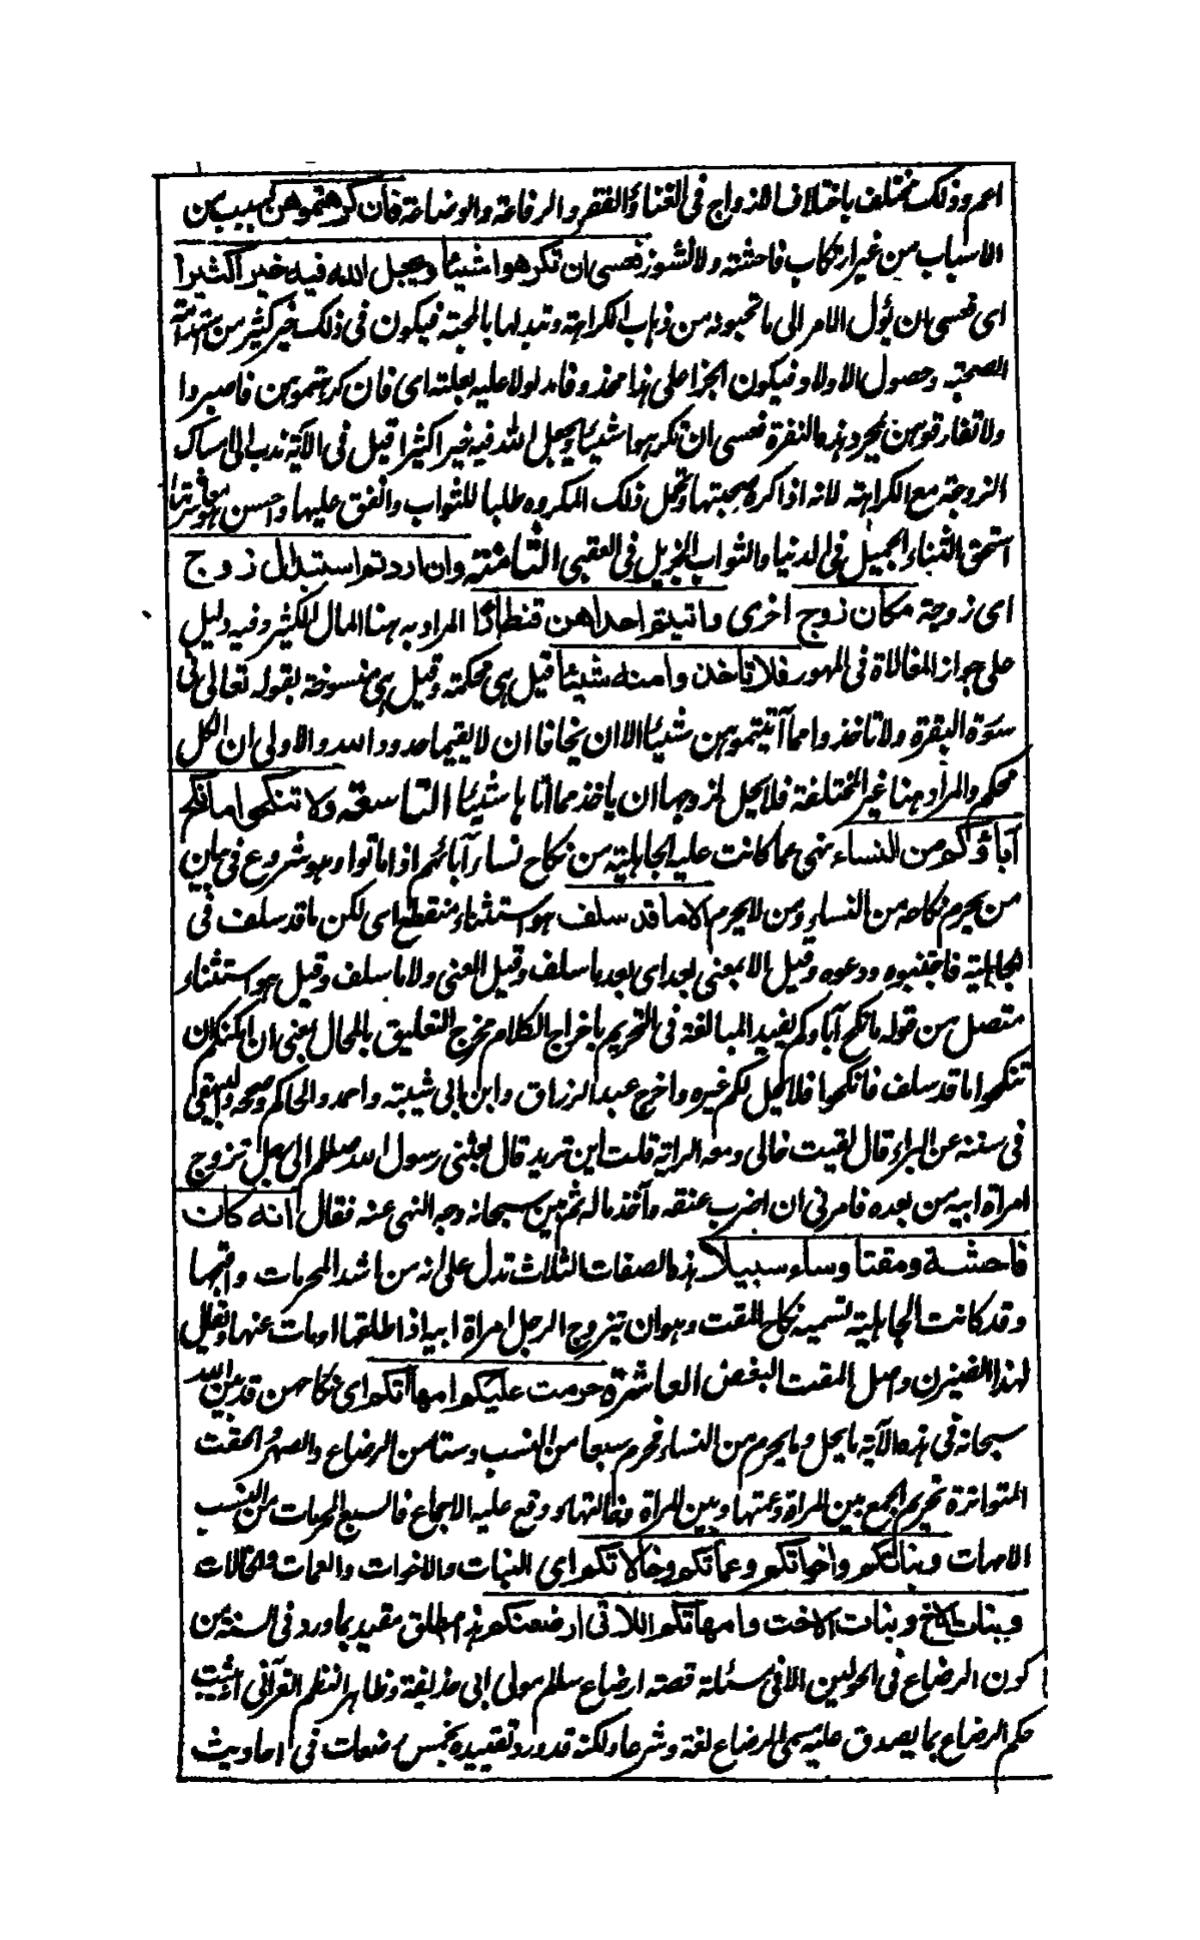 اعم وذلك مختلف باختلاف الازواج فى الغناء والفقر والرفاعة والوضاعة فان كرهتموهن بسبب من
الاسباب من غير ارتكاب فاحشة ولا نشوز فعسى ان تكرهوا شيئا ويجعل الله فيه خيرا كثيرا
اى فعسى ان يؤل الامر الى ما تحبونه من ذهاب الكراهة وتبدلها بالمحبة فيكون فى ذلك خير كثير من استدامة
الصحبة وحصول الاولاد فيكون الجزاء على هذا محذوفا مدلولا عليه بعلته اى فان كرهتموهن فاصبروا
ولا تفارقوهن بمجرد هذه النفرة فعسى ان تكرهوا شيئا ويجعل الله فيه خيرا كثيرا قيل فى الآية ندب الى امساك
الزوجة مع الكراهة لانه اذا كره صحبتها وتحمل ذلك المكروه طلبا للثواب وانفق عليها واحسن هو معاشرتها
استحق الثناء الجميل فى الدنيا والثواب الجزيل فى العقبى الثامنة وان اردتم استبدال زوج
اى زوجة مكان زوج اخرى واتيتم احداهن قنطارا المراد به هنا المال الكثير وفيه دليل
على جواز المغالاة فى المهور فلا تاخذوا منه شيئا قيل هى محكمة وقيل هى منسوخة بقوله تعالى فى
سورة البقرة ولا تاخذوا مما آتيتموهن شيئا الا ان يخافا ان لا يقيما حدود الله والاولى ان الكل
محكم والمراد هنا غير المختلعة فلا يحل لزوجها ان ياخذ مما اتاها شيئا التاسعة ولا تنكحوا ما نكح
آباؤكم من النساء نهى عما كانت عليه الجاهلية من نكاح نساء آبائهم اذا ماتوا وهو شروع فى بيان
من يحرم نكاحه من النساء ومن لا يحرم الا ما قد سلف هو استثناء منقطع اى لكن ما قد سلف فى
الجاهلية فاجتنبوه ودعوه وقيل الا بمعنى بعد اى بعد ما سلف وقيل المعنى ولا ما سلف وقيل هو استثناء
متصل من قوله ما نكح آباؤكم يفيد المبالغة فى التحريم باخراج الكلام مخرج التعليق بالمحال يعنى ان امكنكم ان
تنكحوا ما قد سلف فانكحوا فلا يحل لكم غيره واخرج عبد الرزاق وابن ابى شيبة واحمد والحاكم وصححه والبيهقى
فى سننه عن البراء قال لقيت خالى ومعه الراية قلت اين تريد قال بعثنى رسول الله صلعم الى رجل تزوج
امرأة ابيه من بعده فامرنى ان اضرب عنقه وآخذ ماله ثم بين سبحانه وجه النهى عنه فقال انه كان
فاحشة ومقتا وساء سبيلا هذه الصفات الثلاث تدل على انه من اشد المحرمات واقبحها
وقد كانت الجاهلية تسميه نكاح المقت وهو ان يتزوج الرجل امرأة ابيه اذا طلقها او مات عنها ويقال
لهذا الضيزن واصل المقت البغض العاشرة حرمت عليكم امهاتكم اى نكاحهن قد بين الله
سبحانه فى هذه الآية ما يحل وما يحرم من النساء فحرم سبعا من النسب وستا من الرضاع والصهر الحقت
المتواترة تحريم الجمع بين المرأة وعمتها وبين المرأة وخالتها ووقع عليه الاجماع فالسبع المحرمات من النسب
الامهات وبناتكم واخواتكم وعماتكم وخالاتكم اى البنات والاخوات والعمات والخالات
وبنات الاخ وبنات الاخت وامهاتكم اللاتى ارضعنكم هذا مطلق مقيد بما ورد فى السنة من
كون الرضاع فى الحولين الا فى مسئلة قصة ارضاع سالم مولى ابى حذيفة وظاهر النظم القرآنى انه يثبت
حكم الرضاع بما يصدق عليه مسمى الرضاع لغة وشرعا ولكنه قد ورد تقييده بخمس رضعات فى احاديث